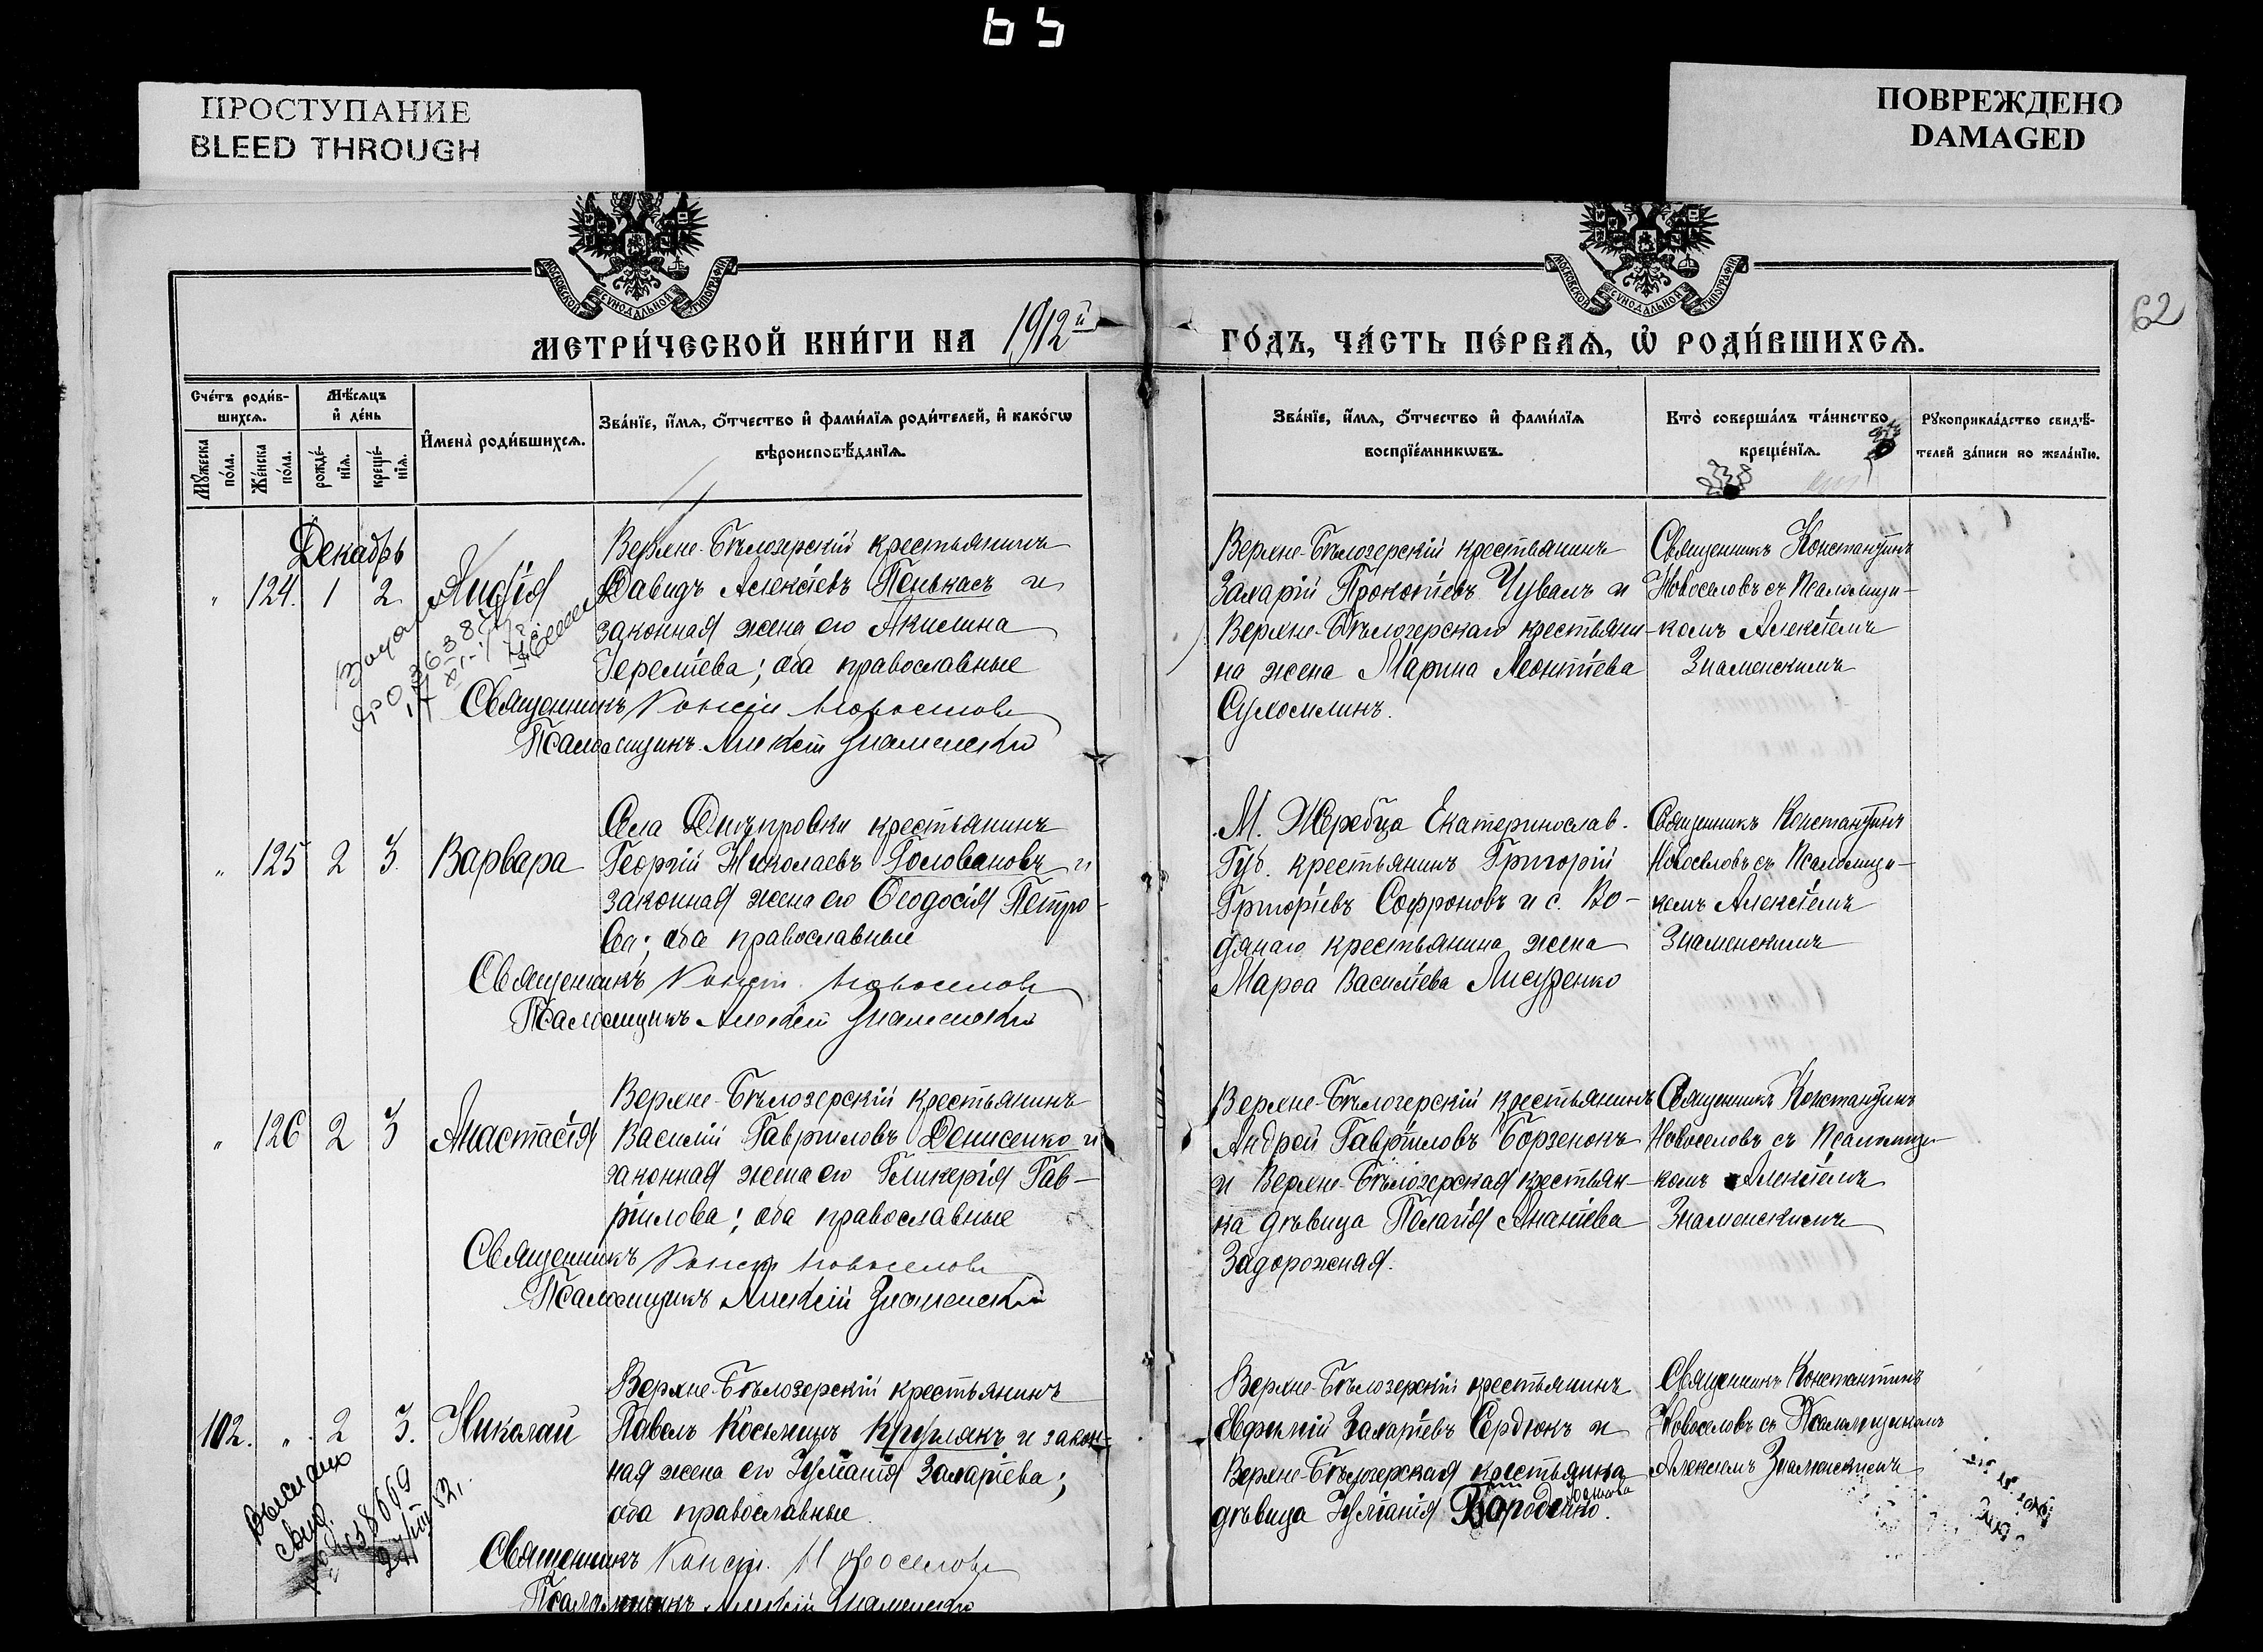 65
ПРОСТУПАНИЕ
BLEED THROUGH
ПОВРЕЖДЕНО
DAMAGED
МОСКОВСКОЙ СѴНОДАЛЬНОЙ ТИПОГРАФІИ
МОСКОВСКОЙ СѴНОДАЛЬНОЙ ТИПОГРАФІИ
62
МЕТРИ́ЧЕСКОЙ КНИ́ГИ НА 1912й
ГО́ДЪ, ЧА́СТЬ ПЕ́РВАѦ, Ѡ҆ РОДИ́ВШИХСѦ.
Сче́тъ роди́в-
шихсѧ.
Мѣ́сѧцъ
и҆ де́нь
Мꙋ́жеска
по́ла.
Же́нска
по́ла.
рожде́-
нїѧ.
креще́-
нїѧ.
И҆мена̀ роди́вшихсѧ.
Зва́нїе, и҆́мѧ, ѻ҆́тчество и҆ фами́лїѧ роди́телей, и҆ како́гѡ
вѣроисповѣ́данїѧ.
Зва́нїе, и҆́мѧ, ѻ҆́тчество и҆ фами́лїѧ
воспрїе́мникѡвъ.
Кто̀ соверша́лъ та́инство
креще́нїѧ.
Рꙋкоприкла́дство свидѣ́-
телей за́писи по жела́нїю.
Декабрь
" 124. 1 2 Лидія
Верхне-Бѣлозерскій крестьянинъ
Давидъ Алексіевъ Пенькасъ и
законная жена его Акилина
Іереміева; оба православные
Священникъ Конст. Новоселовъ
Псаломщикъ Алексій Знаменскій
Верхне-Бѣлозерскій крестьянинъ
Захарій Прокопіевъ Чувалъ и
Верхне-Бѣлозерскаго крестьяни-
на жена Марина Леонтіева
Сухомлинъ.
Священникъ Константинъ
Новоселовъ съ Псаломщи-
комъ Алексіемъ
Знаменскимъ
" 125 2 3. Варвара
Села Днѣпровки крестьянинъ
Георгій Николаевъ Головановъ и
законная жена его Ѳеодосія Петро-
ва; оба православные
Священникъ Конст. Новоселовъ
Псаломщикъ Алексій Знаменскій
М. Жеребца Екатеринослав.
Губ. крестьянинъ Григорій
Григоріевъ Софроновъ и с. Во-
дянаго крестьянина жена
Марѳа Василіева Лисуренко
Священникъ Константинъ
Новоселовъ съ Псаломщи-
комъ Алексіемъ
Знаменскимъ
" 126 2 3 Анастасія
Верхне-Бѣлозерскій крестьянинъ
Василій Гавріиловъ Денисенко и
законная жена его Гликерія Гав-
ріилова; оба православные
Священникъ Конст. Новоселовъ
Псаломщикъ Алексій Знаменскій
Верхне-Бѣлозерскій крестьянинъ
Андрей Гавріиловъ Борзенокъ
и Верхне-Бѣлозерская крестьян-
ка дѣвица Пелагія Ананіева
Задорожная.
Священникъ Константинъ
Новоселовъ съ Псаломщи-
комъ Алексіемъ
Знаменскимъ
102. " 2 3. Николай
Верхне-Бѣлозерскій крестьянинъ
Павелъ Косьминъ Круплякъ и закон-
ная жена его Іуліанія Захаріева;
оба православные
Священникъ Конст. Новоселовъ
Псаломщикъ Алексій Знаменскій
Верхне-Бѣлозерскій крестьянинъ
Евфимій Захаріевъ Сердюкъ и
Верхне-Бѣлозерская крестьянка
дѣвица Іуліанія
Священникъ Константинъ
Новоселовъ съ Псаломщикомъ
Алексіемъ Знаменскимъ
Выслано
свид.